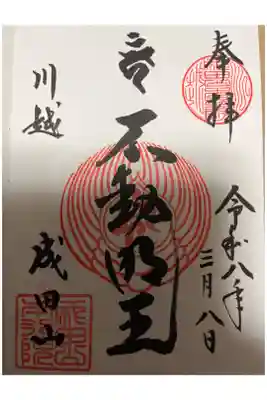 奉拝
令和八年
三月八日
不動明王
川越
成田山